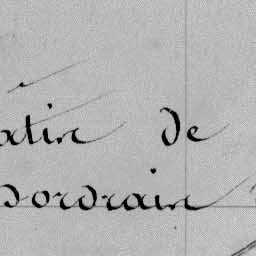 atin de
dordrain